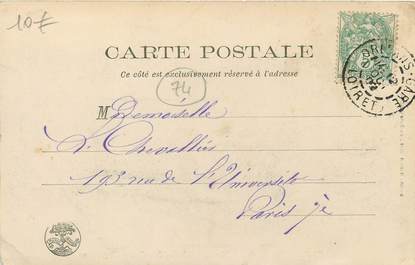 10€
CARTE POSTALE
Ce côté est exclusivement réservé à l'adresse
74
Mademoiselle
L. Chevallier
193 rue de l'Université
Paris 7e
LOIRET